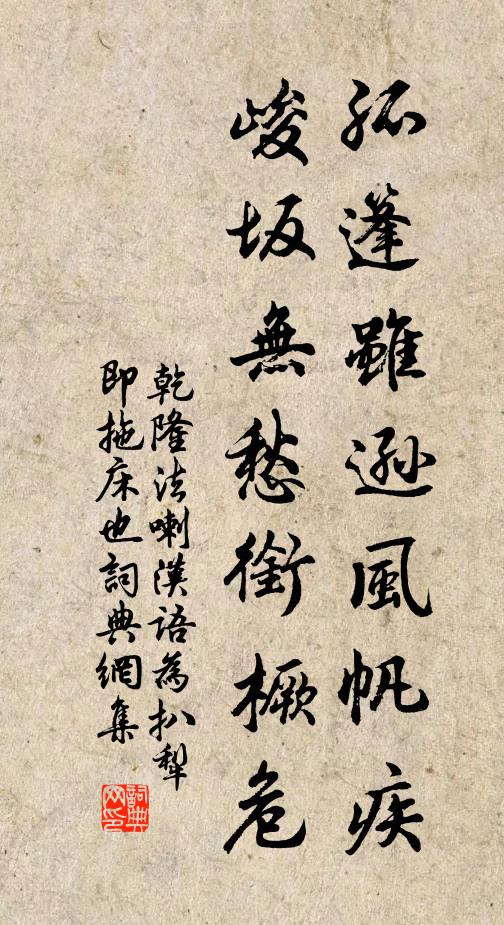 孤蓬雖遜風帆疾
峻坂無愁銜橛危
乾隆法喇漢語為扒犁
即拖床也詞典網集
詞典网印